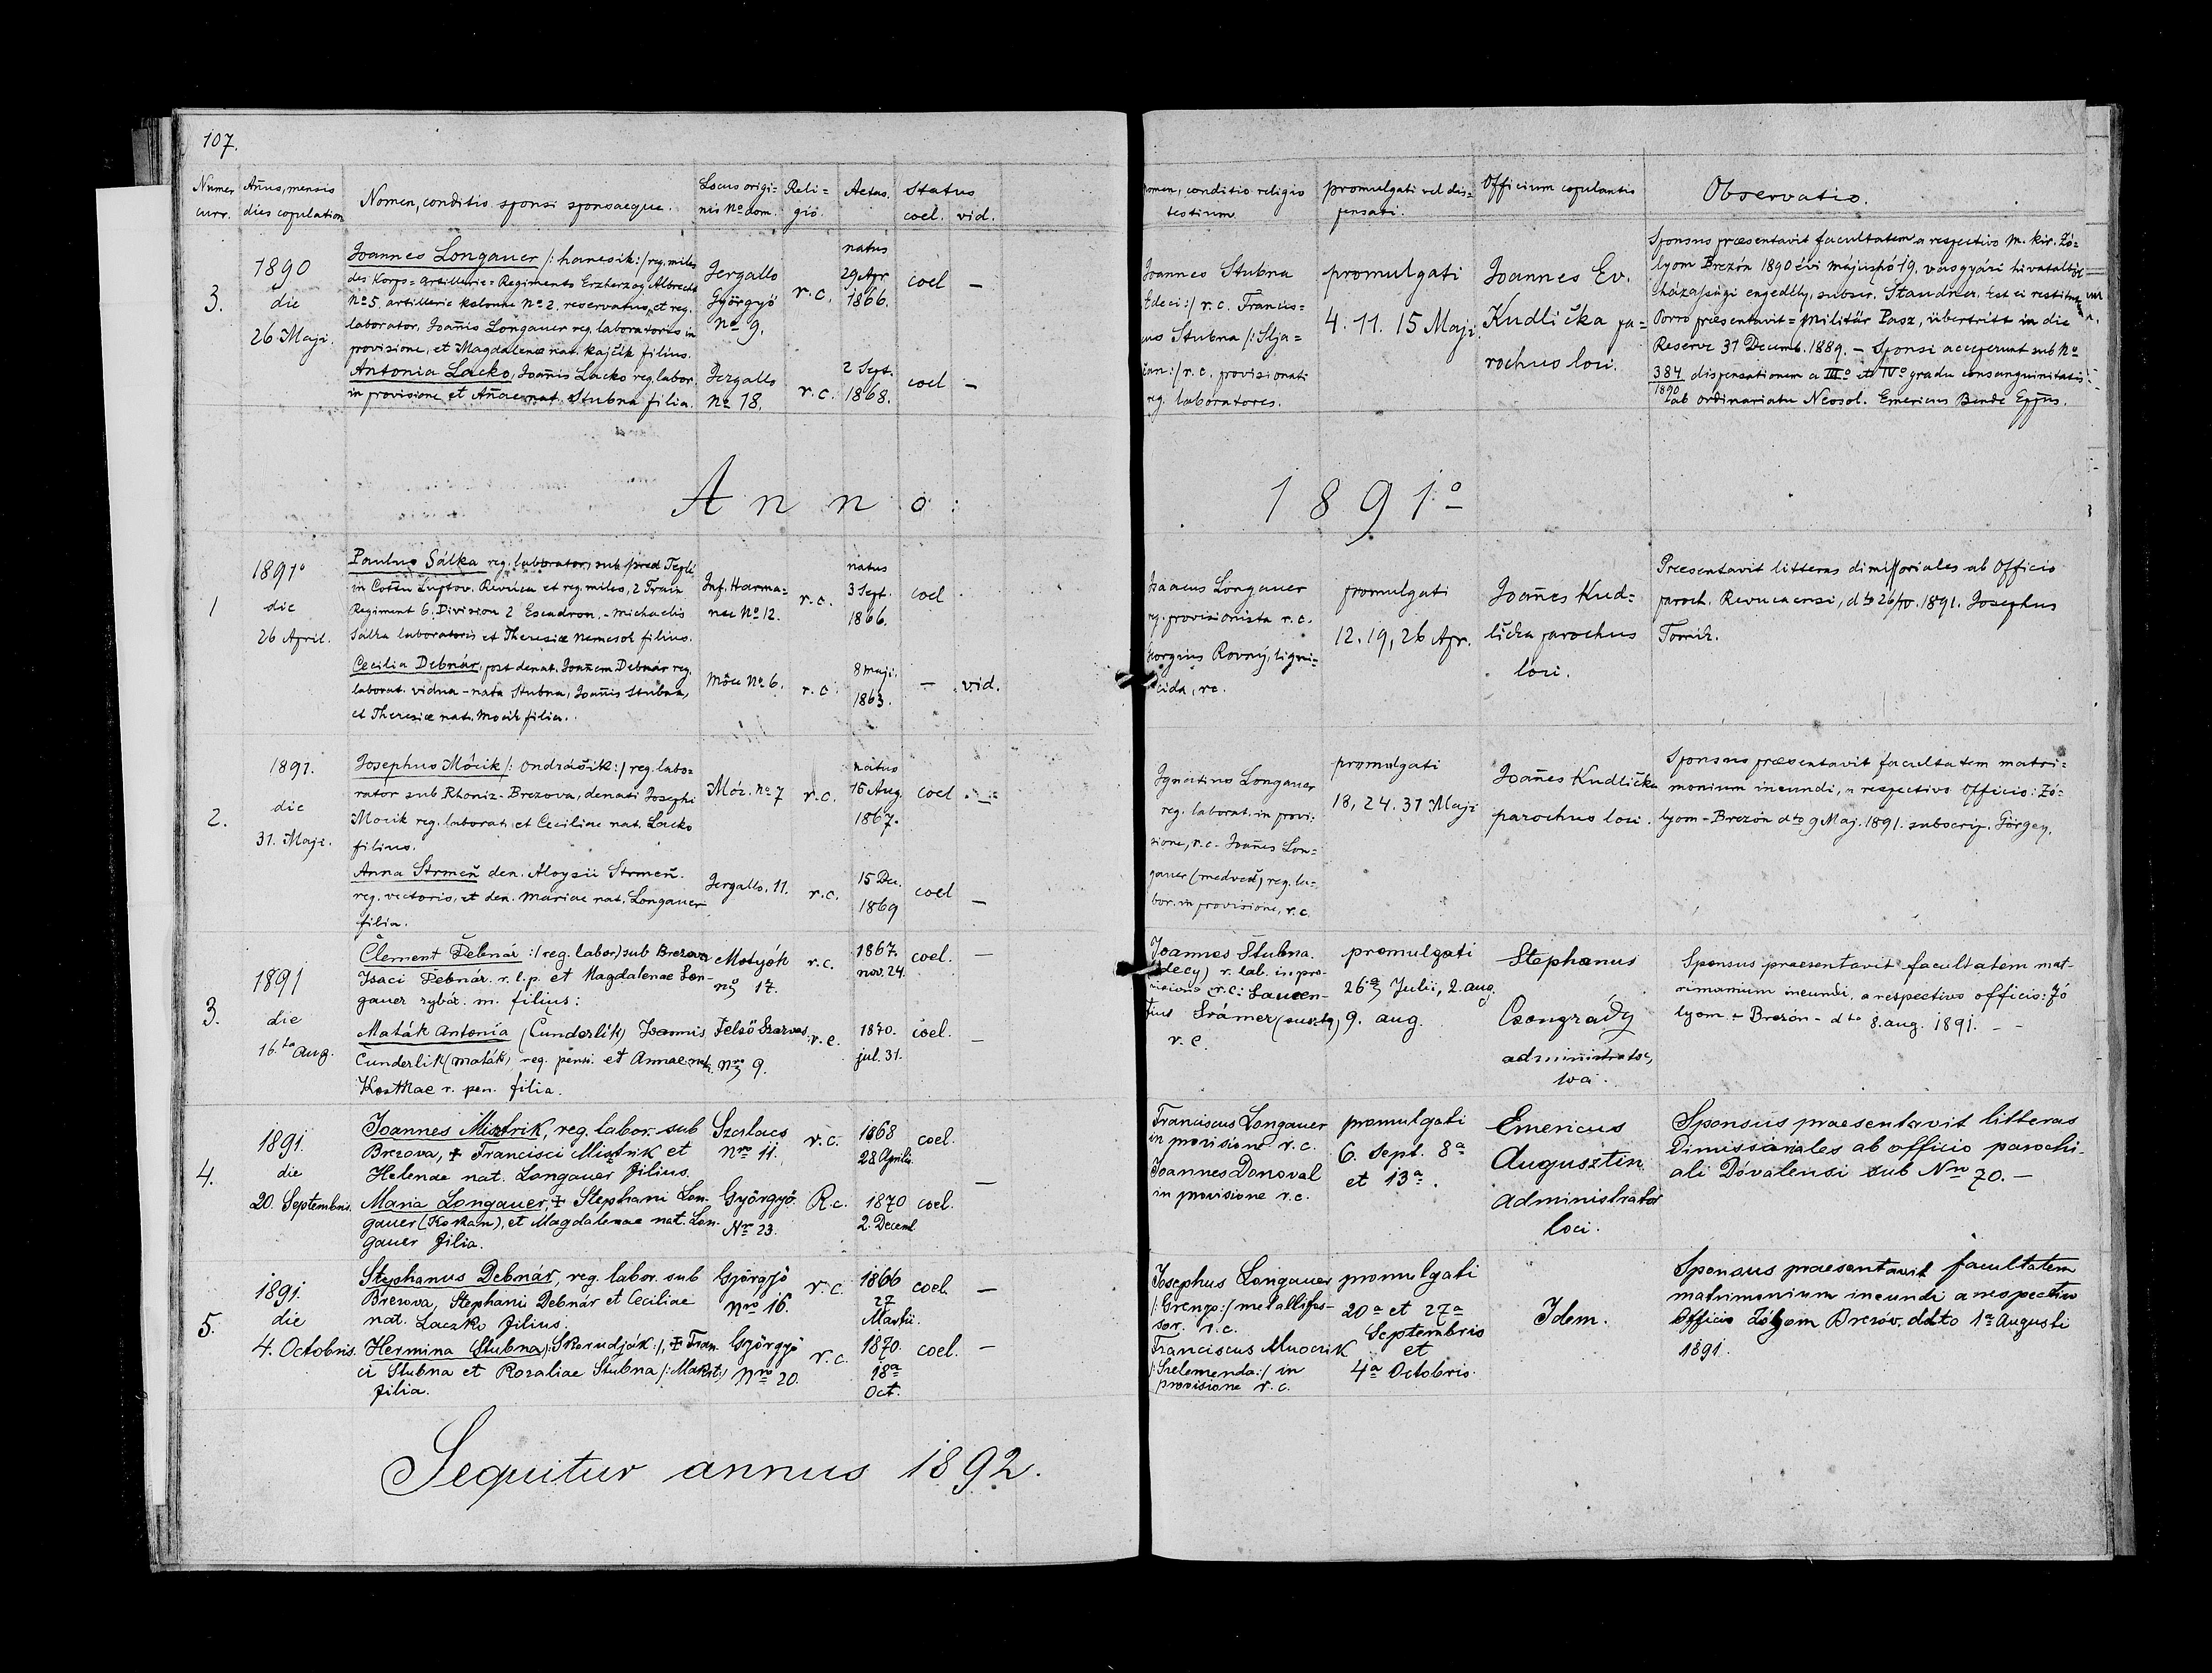 107.
Numer curr.
Annus, mensis dies copulation
Nomen, conditio sponsi sponsaeque.
Locus originis No dom.
Religio.
Aetas.
Status
coel. vid.
nomen, conditio religio testium
promulgati vel dispensati.
Officium copulantis
Observatio.
3.
1890
die
26 Maji.
Joannes Longauer /: hanesik :/ reg. miles
des Korps=Artillerie=Regiments Erzherzog Albrecht
No 5. artillerie kolonne No 2. reservatus, et reg.
laborator, Joannis Longauer reg. laboratoris in
provisione, et Magdalenae nat. Kajčik filius.
Jergallo
György
No 9.
r. c.
natus
29 Apr
1866.
coel —
Antonia Lacko, Joannis Lacko reg. labor.
in provisione et Annae nat. Stubna filia.
Jergallo
No 18.
r. c.
2 Sept.
1868.
coel —
Joannes Stubna
r. c. Francis=
Stubna
r. c. provisionati
reg. laboratores.
promulgati
4. 11. 15 Maji.
Joannes Ev.
Kudlička pa=
rochus loci.
Sponsus praesentavit facultatem a respectivo m. kir. Zó=
lyom Brezón 1890 évi májushó 19. vasgyári hivataltól
házassági engedély, subscr. Staudner. Est ei restituta
Porro praesentavit = Militär Pasz, übertritt in die
Reserve 31 Decemb. 1889. — Sponsi acceperunt sub No
384/1890 dispensationem a IIIo et IVo gradu consanguinitatis
ab ordinariatu Neosol. Emericus Bende Eppus.
Anno: 1891o
1
1891o
die
26 April.
Paulus Sálka reg. laborator, sub praed
in Liptov. Revúca et reg. miles, 2 Train
Regiment 6. Division 2 Escadron. - Michaelis
Sálka laboratoris et Theresiae Nemesol filius.
Inf. Harma=
nec No 12.
r. c.
natus
3 Sept.
1866.
coel
Cecilia Debnár, post denat. Joannem Debnár reg.
laborat. vidua - nata Stubna, Joannis Stubna,
et Theresiae nat. Mocik filia.
Môce No 6.
r. c.
8 Maji.
1863.
— vid.
Isaacus Longauer
reg. provisionista r. c.
Rovný, ligni=
cida, rc.
promulgati
12. 19, 26 Apr.
Joannes Kud=
lička parochus
loci.
Praesentavit litteras dimissoriales ab Officio
paroch. Revucaensi, dto 26/IV. 1891. Josephus
2.
1891.
die
31. Maji.
Josephus Môcik /: Ondrášik :/ reg. labo=
rator sub Rhoniz-Brezova, denati Josephi
Mocik reg. laborat. et Ceciliae nat. Lacko
filius.
Móč. No 7
r. c.
natus
16 Aug.
1867.
coel. —
Anna Strmeň den. Aloysii Strmeň.
reg. vectoris, et den. Mariae nat. Longauer
filia.
Jergallo, 11.
r. c.
15 Dec.
1869
coel —
Ignatius Longauer
reg. laborat. in provi=
sione, r. c. Joannes Lon=
gauer (medveď) reg. la=
bor. in provisione, r. c.
promulgati
18, 24. 31 Maji
Joannes Kudlička
parochus loci.
Sponsus praesentavit facultatem matri=
monium ineundi, a respectivo officio: Zó=
lyom-Brezón dto 9 Maj. 1891. subscrip. Görgey.
3.
1891
die
16.to Aug.
Clement Debnár :/ reg. labor) sub Brezova
Isaci Debnár. r. l. p. et Magdalenae Lon-
gauer rybár. m. filius:
Motyók
No 17.
r. c.
1867.
nov. 24.
coel. —
Maták Antonia (Cunderlík) Joannis
Cunderlík (maták) reg. pensi. et Annae nat.
r. pen. filia.
Felső Szarvas
Nro 9.
r. c.
1870.
jul. 31.
coel. —
Joannes Štubna
r. lab. in pro-
visione r. c.: Lauren-
tius Srámer
r. c.
promulgati
26a Julii, 2. aug.
9. aug.
Stephanus
Csongrády
administrator,
loci.
Sponsus praesentavit facultatem mat-
rimonium ineundi, a respectivo officio: Zó
lyom - Brezón - dto 8. aug. 1891. - -
4.
1891.
die
20. Septembris.
Joannes Mistrik, reg. labor. sub
Brezova, ✝ Francisci Mistrik et
Helenae nat. Longauer filius.
Szalacs
Nro 11.
r. c.
1868
28 Aprilis
coel.
—
Maria Longauer, ✝ Stephani Lon-
gauer (Koskam), et Magdalenae nat. Lon-
gauer filia.
Györgyó
Nr 23.
R. c.
1870
2. Decemb
coel.
Franciscus Longauer
in provisione r. c.
Joannes Donoval
in provisione r. c.
promulgati
6. Sept. 8a
et 13a.
Emericus
Augusztin
Administrator
loci.
Sponsus praesentavit litteras
Dimissoriales ab officio parochi-
ali Dóvalensi sub Nro 70. —
5.
1891.
die
4. Octobris.
Stephanus Debnár, reg. labor. sub
Brezova, Stephani Debnár et Ceciliae
nat. Laczko filius.
Györgyö
Nro 16.
r. c.
1866
27
Martii.
coel. —
Hermina Stubna /: Skorudják :/, ✝ Fran-
ci Stubna et Rozaliae Stubna
filia.
Györgyö
Nro 20.
r. c.
1870.
18a
Oct.
coel. —
Josephus Longauer
/: Grengo :/ metallifos-
sor. r. c.
Franciscus Muocrik
/: Szelemenda :/ in
provisione r. c.
promulgati
20a et 27a
Septembris
et
4a Octobris.
Idem.
Sponsus praesentavit facultatem
matrimonium ineundi a respectivo
Officio Zólyom Brezóv. ddto 1a Augusti
1891.
Sequitur annus 1892.